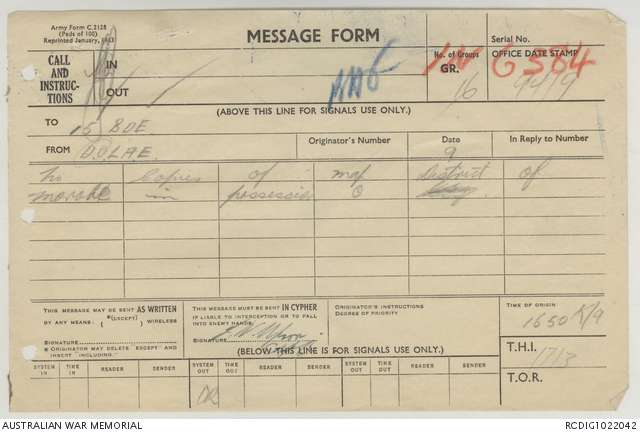 Army Form C.2128
(Pads of 100)
Reprinted January, 1943
MESSAGE FORM
Serial No.
CALL AND INSTRUCTIONS
IN
OUT
No. of Groups
GR.
16
IN G 584
OFFICE DATE STAMP
(ABOVE THIS LINE FOR SIGNALS USE ONLY.)
TO 15 BDE
FROM
Originator's Number
Date
9
In Reply to Number
No Copies of map District of
in possession
THIS MESSAGE MAY BE SENT AS WRITTEN
BY ANY MEANS. { *(EXCEPT) } WIRELESS
SIGNATURE
* ORIGINATOR MAY DELETE "EXCEPT" AND INSERT "INCLUDING."
THIS MESSAGE MUST BE SENT IN CYPHER
IF LIABLE TO INTERCEPTION OR TO FALL INTO ENEMY HANDS.
SIGNATURE
ORIGINATOR'S INSTRUCTIONS
DEGREE OF PRIORITY
TIME OF ORIGIN
1650K/9
(BELOW THIS LINE IS FOR SIGNALS USE ONLY.)
T.H.I.
1713
T.O.R.
SYSTEM IN
TIME IN
READER
SENDER
SYSTEM OUT
TIME OUT
READER
SENDER
SYSTEM OUT
TIME OUT
READER
SENDER
AUSTRALIAN WAR MEMORIAL
RCDIG1022042